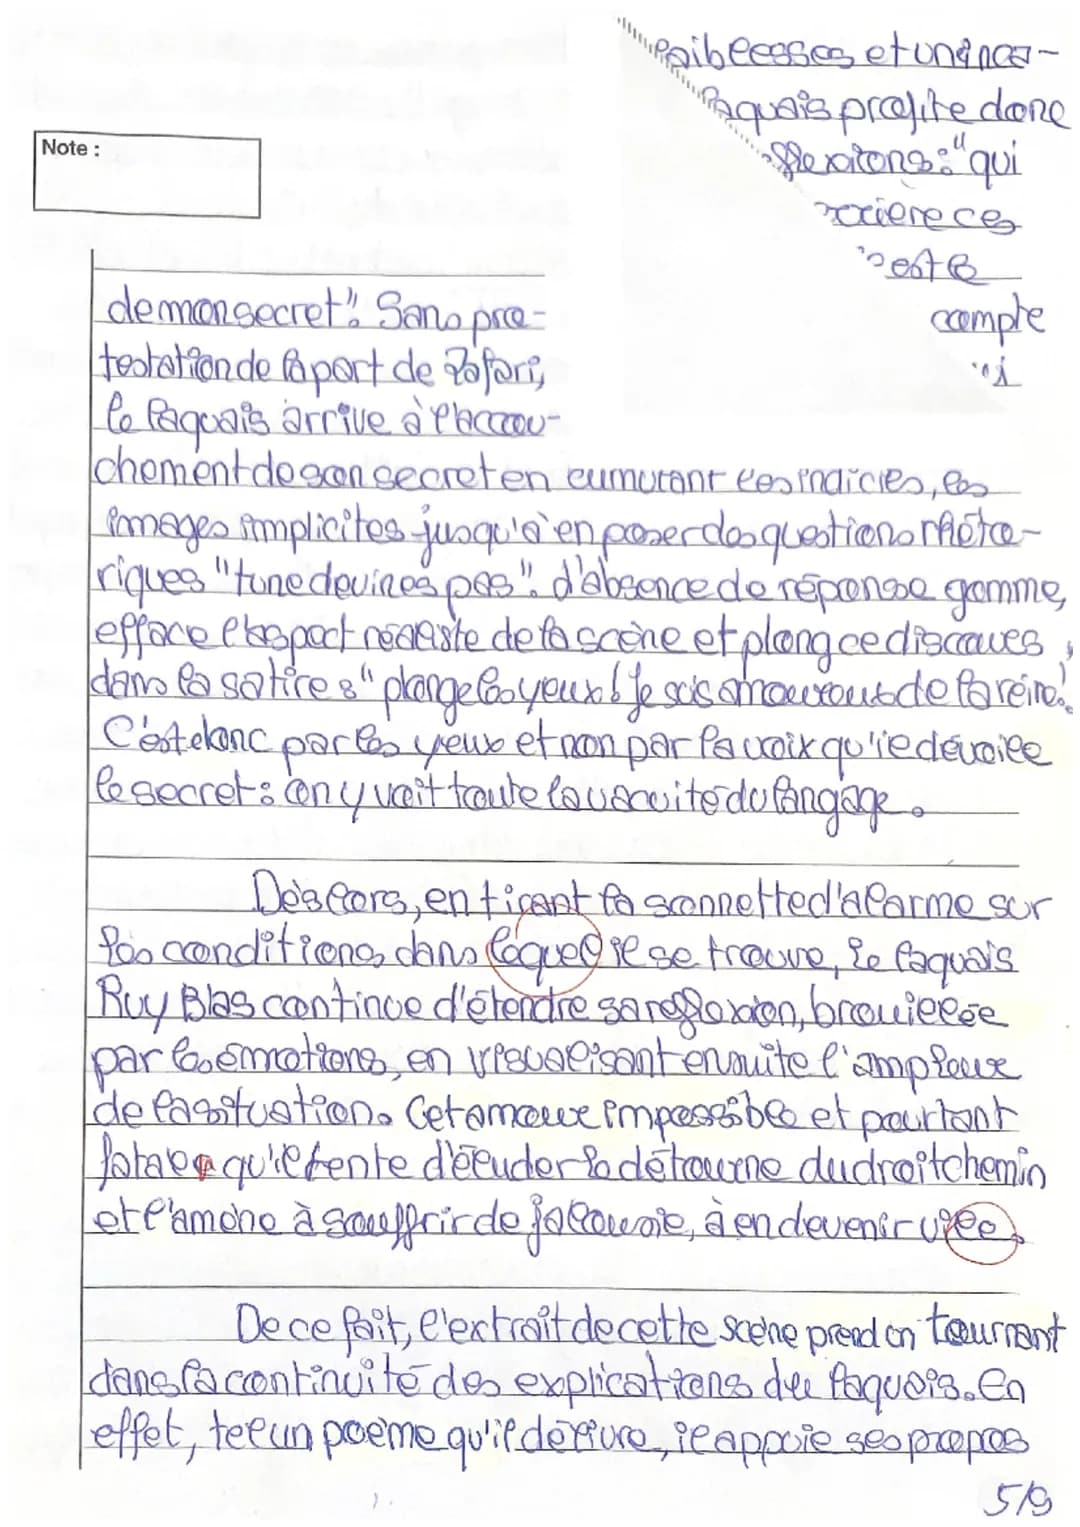 faiblesses et une
laquais profite donc
flexions : "qui
rrière ces
est le
compte
Note :
de mon secret". Sans pro-
testation de la part de Zafari,
le laquais arrive à l'accou-
chement de son secret en cumulant les indices, les
images implicites jusqu'à en poser des questions rhéto-
riques "tu ne devines pas". d'absence de réponse gomme,
efface l'aspect réaliste de la scène et plonge ce discours
dans la satire : "plonge les yeux ! Je suis amoureux de la reine".
C'est donc par les yeux et non par la voix qu'il dévoile
le secret : on y voit toute la vacuité du langage.
Dès lors, en tirant la sonnette d'alarme sur
les conditions dans laquel il se trouve, le laquais
Ruy Blas continue d'étendre sa reflexion, brouillée
par les émotions, en visualisant ensuite l'ampleur
de la situation. Cet amour impossible et pourtant
fatale qu'il tente d'éluder le détourne du droit chemin
et l'amène à souffrir de jalousie, à en devenir vile.
De ce fait, l'extrait de cette scène prend un tournant
dans la continuité des explications du laquais. En
effet, tel un poème qu'il délivre, il appuie ses propos
5/9